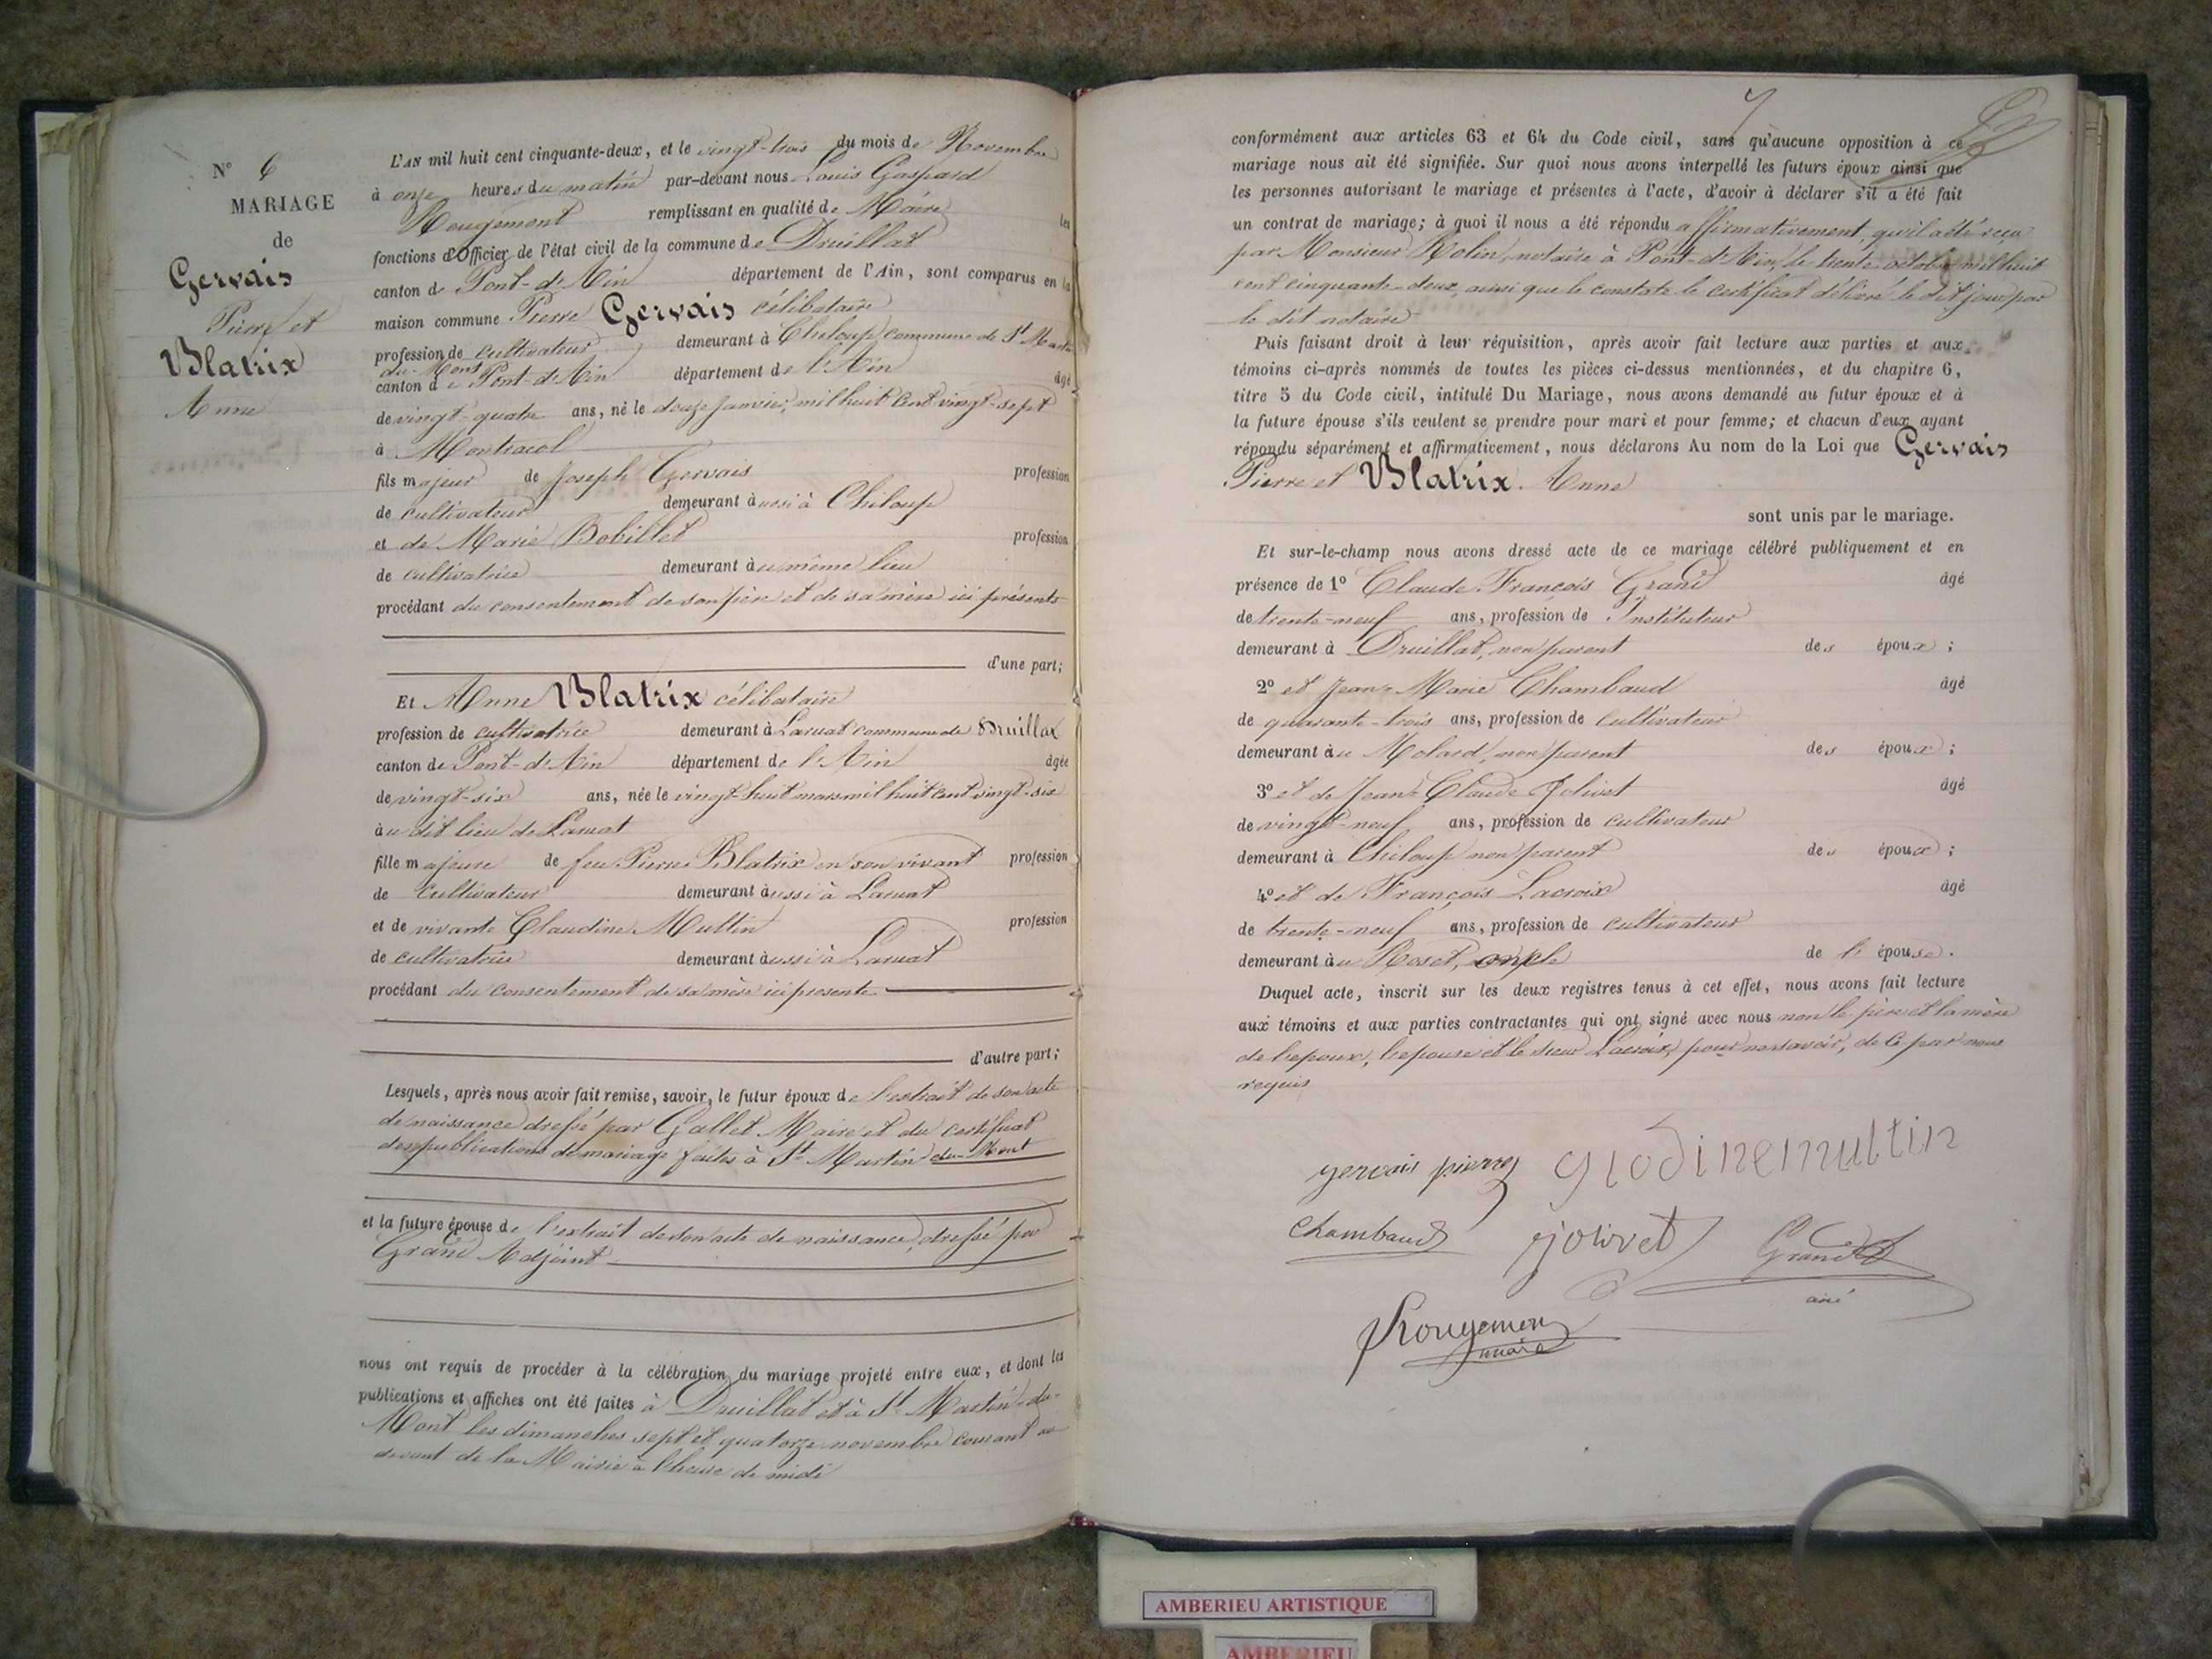 N° 6
MARIAGE
de
Gervais
Pierre et
Blatrix
Anne
L'AN mil huit cent cinquante-deux, et le vingt-trois du mois de Novembre
à onze heures du matin par-devant nous Louis Gaspard
Rougemont remplissant en qualité de Maire les
fonctions d'Officier de l'état civil de la commune de Druillat
canton de Pont-d'Ain département de l'Ain, sont comparus en la
maison commune Pierre Gervais célibataire
profession de cultivateur demeurant à Chiloup commune de St Martin
du-Mont
canton de Pont-d'Ain département de l'Ain âgé
de vingt-quatre ans, né le douze janvier mil huit cent vingt-sept
à Montracol
fils majeur de Joseph Gervais profession
de cultivateur demeurant aussi à Chiloup
et de Marie Bobillet profession
de cultivatrice demeurant au même lieu
procédant du consentement de son père et de sa mère ici présents
d'une part;
Et Anne Blatrix célibataire
profession de cultivatrice demeurant à Larnat commune de Druillat
canton de Pont-d'Ain département de l'Ain âgée
de vingt-six ans, née le vingt-huit mars mil huit cent vingt-six
au dit lieu de Larnat
fille majeure de feu Pierre Blatrix en son vivant profession
de cultivateur demeurant aussi à Larnat
et de vivante Claudine Multin profession
de cultivatrice demeurant aussi à Larnat
procédant du consentement de sa mère ici présente
d'autre part;
Lesquels, après nous avoir fait remise, savoir, le futur époux de l'extrait de son acte
de naissance dressé par Gallet Maire et du certificat
des publications de mariage faites à St Martin du-Mont
et la future épouse de l'extrait de son acte de naissance, dressé par
Grand Adjoint
nous ont requis de procéder à la célébration du mariage projeté entre eux, et dont les
publications et affiches ont été faites à Druillat et à St Martin-du-
Mont les dimanches sept et quatorze novembre courant au
devant de la Mairie à l'heure de midi
7
conformément aux articles 63 et 64 du Code civil, sans qu'aucune opposition à ce
mariage nous ait été signifiée. Sur quoi nous avons interpellé les futurs époux ainsi que
les personnes autorisant le mariage et présentes à l'acte, d'avoir à déclarer s'il a été fait
un contrat de mariage; à quoi il nous a été répondu affirmativement, qu'il a été reçu
par Monsieur Rolin, notaire à Pont-d'Ain, le trente octobre mil huit
cent cinquante-deux, ainsi que le constate le certificat délivré le dit jour par
le dit notaire
Puis faisant droit à leur réquisition, après avoir fait lecture aux parties et aux
témoins ci-après nommés de toutes les pièces ci-dessus mentionnées, et du chapitre 6,
titre 5 du Code civil, intitulé Du Mariage, nous avons demandé au futur époux et à
la future épouse s'ils veulent se prendre pour mari et pour femme; et chacun d'eux ayant
répondu séparément et affirmativement, nous déclarons Au nom de la Loi que Gervais
Pierre et Blatrix Anne
sont unis par le mariage.
Et sur-le-champ nous avons dressé acte de ce mariage célébré publiquement et en
présence de 1° Claude François Grand âgé
de trente-neuf ans, profession de Instituteur
demeurant à Druillat, non parent des époux;
2° et Jean-Marie Chambaud âgé
de quarante-trois ans, profession de cultivateur
demeurant au Molard, non parent des époux;
3° et de Jean-Claude Jolivet âgé
de vingt-neuf ans, profession de cultivateur
demeurant à Chiloup non parent des époux;
4° et de François Lacroix âgé
de trente-neuf ans, profession de cultivateur
demeurant au Roset, oncle de l'épouse.
Duquel acte, inscrit sur les deux registres tenus à cet effet, nous avons fait lecture
aux témoins et aux parties contractantes qui ont signé avec nous non le père et la mère
de l'epoux, l'epouse et le sieur Lacroix, pour ne savoir, de ce par nous
requis
gervais pierre glodinemultin
Chambaud jolivet Grand
ainé
Rougemont
maire
AMBERIEU ARTISTIQUE
AMBERIEU